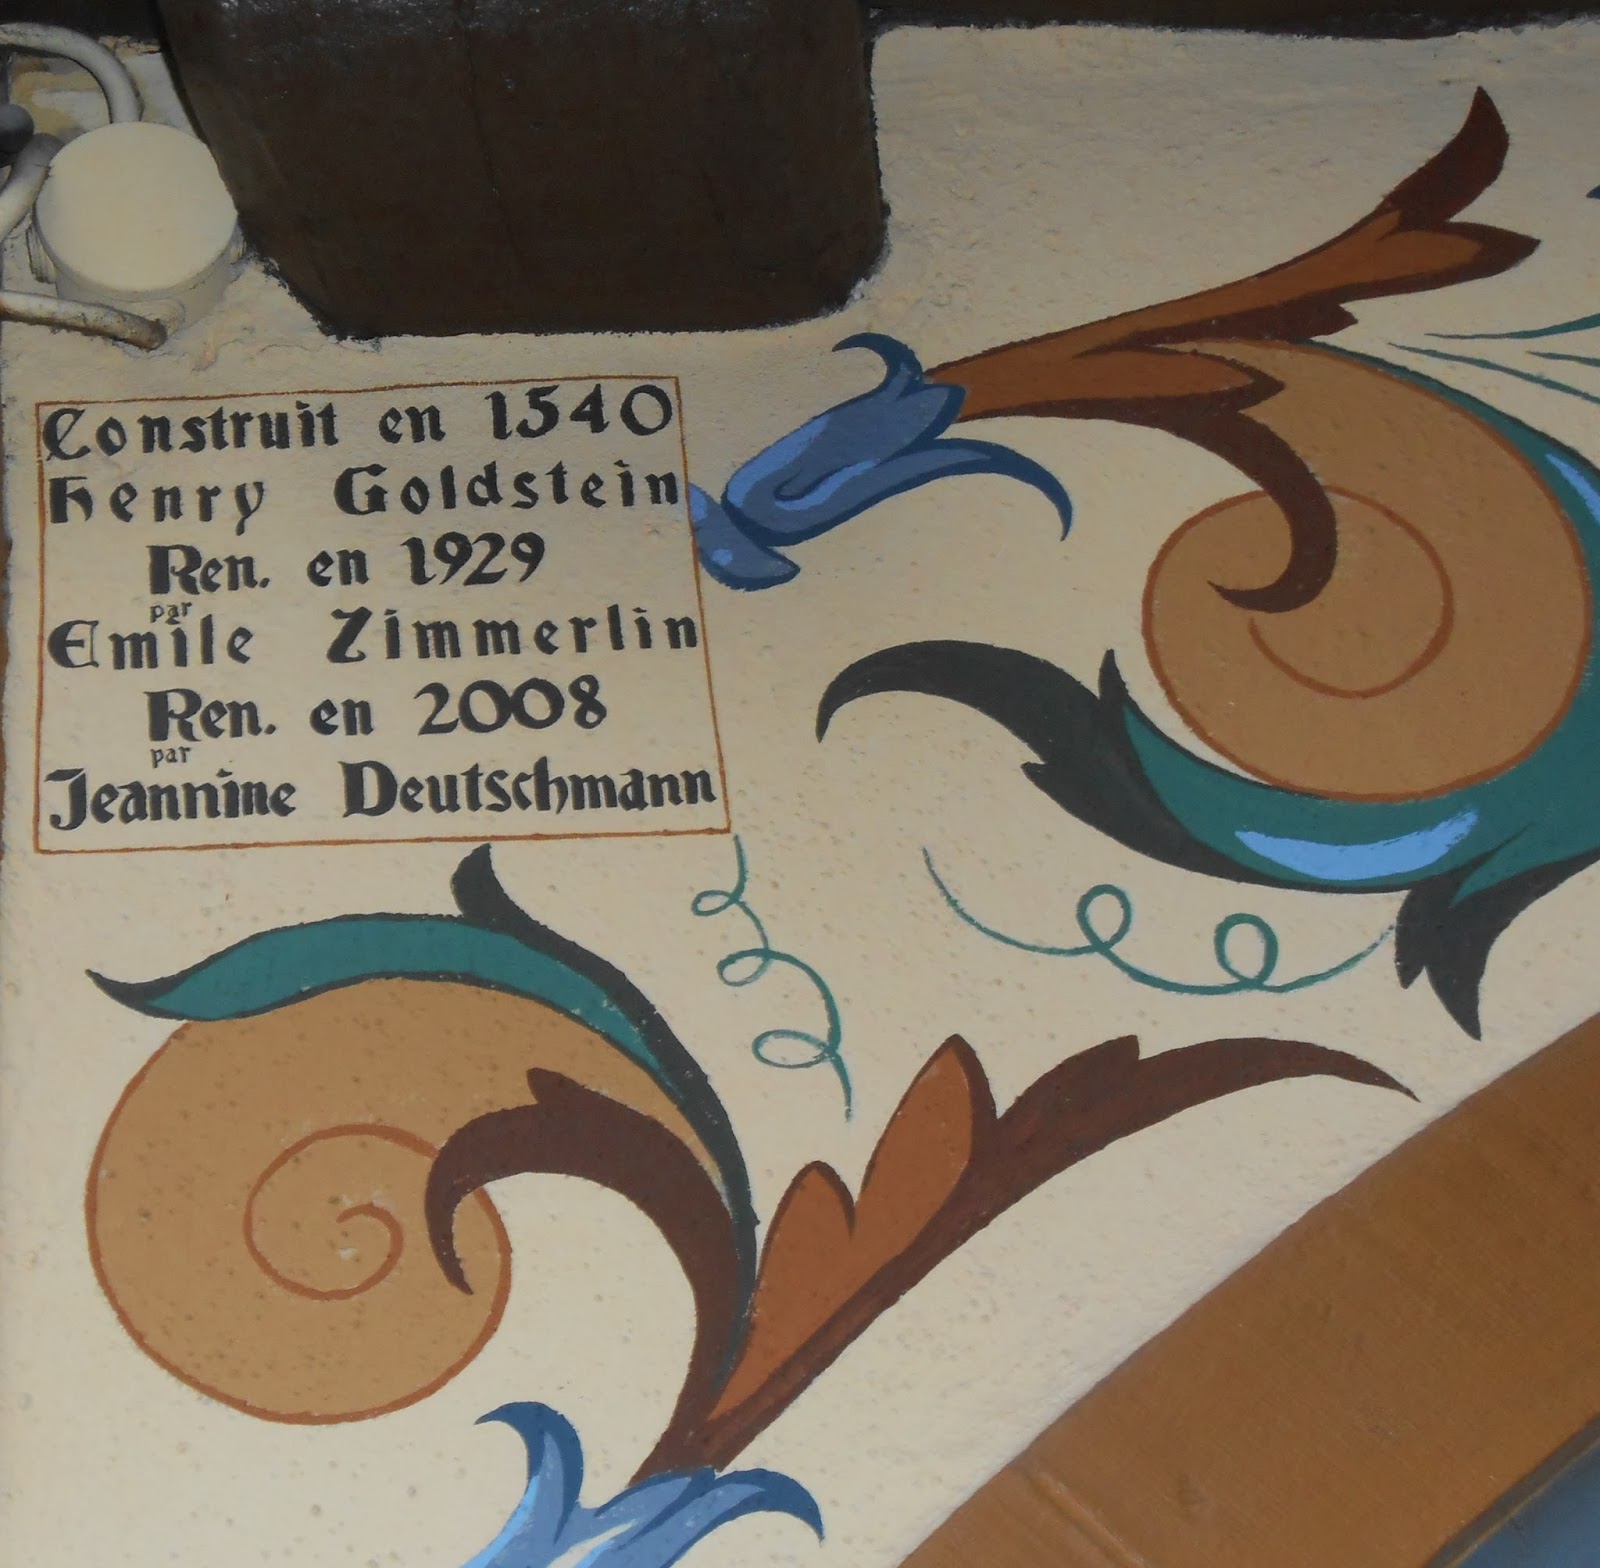 Construit en 1540
Henry Goldstein
Ren. en 1929
par
Emile Zimmerlin
Ren. en 2008
par
Jeannine Deutschmann